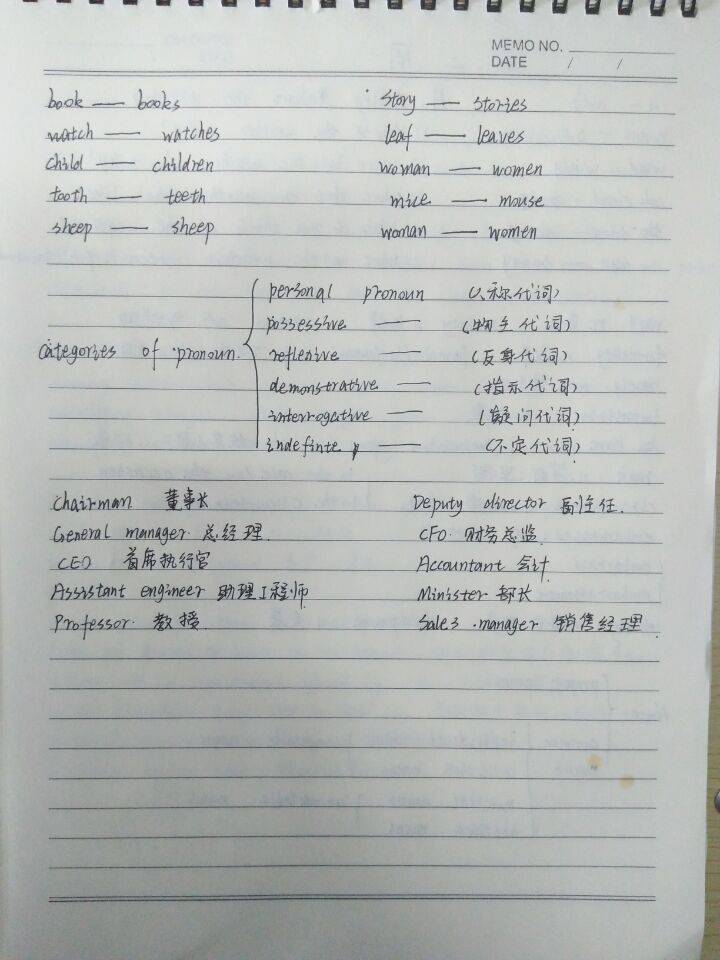 MEMO NO.
DATE / /
book — books Story — stories
watch — watches leaf — leaves
child — children woman — women
tooth — teeth mice — mouse
sheep — sheep woman — women
personal pronoun (人称代词)
possessive — (物主代词)
categories of pronoun. reflexive — (反身代词)
demonstrative — (指示代词)
interrogative — (疑问代词)
indefinte p — (不定代词)
Chairman 董事长 Deputy director 副主任.
General manager. 总经理. CFO. 财务总监
CEO 首席执行官 Accountant 会计
Assistant engineer 助理工程师 Minister 部长
Professor. 教授. Sales .manager 销售经理.